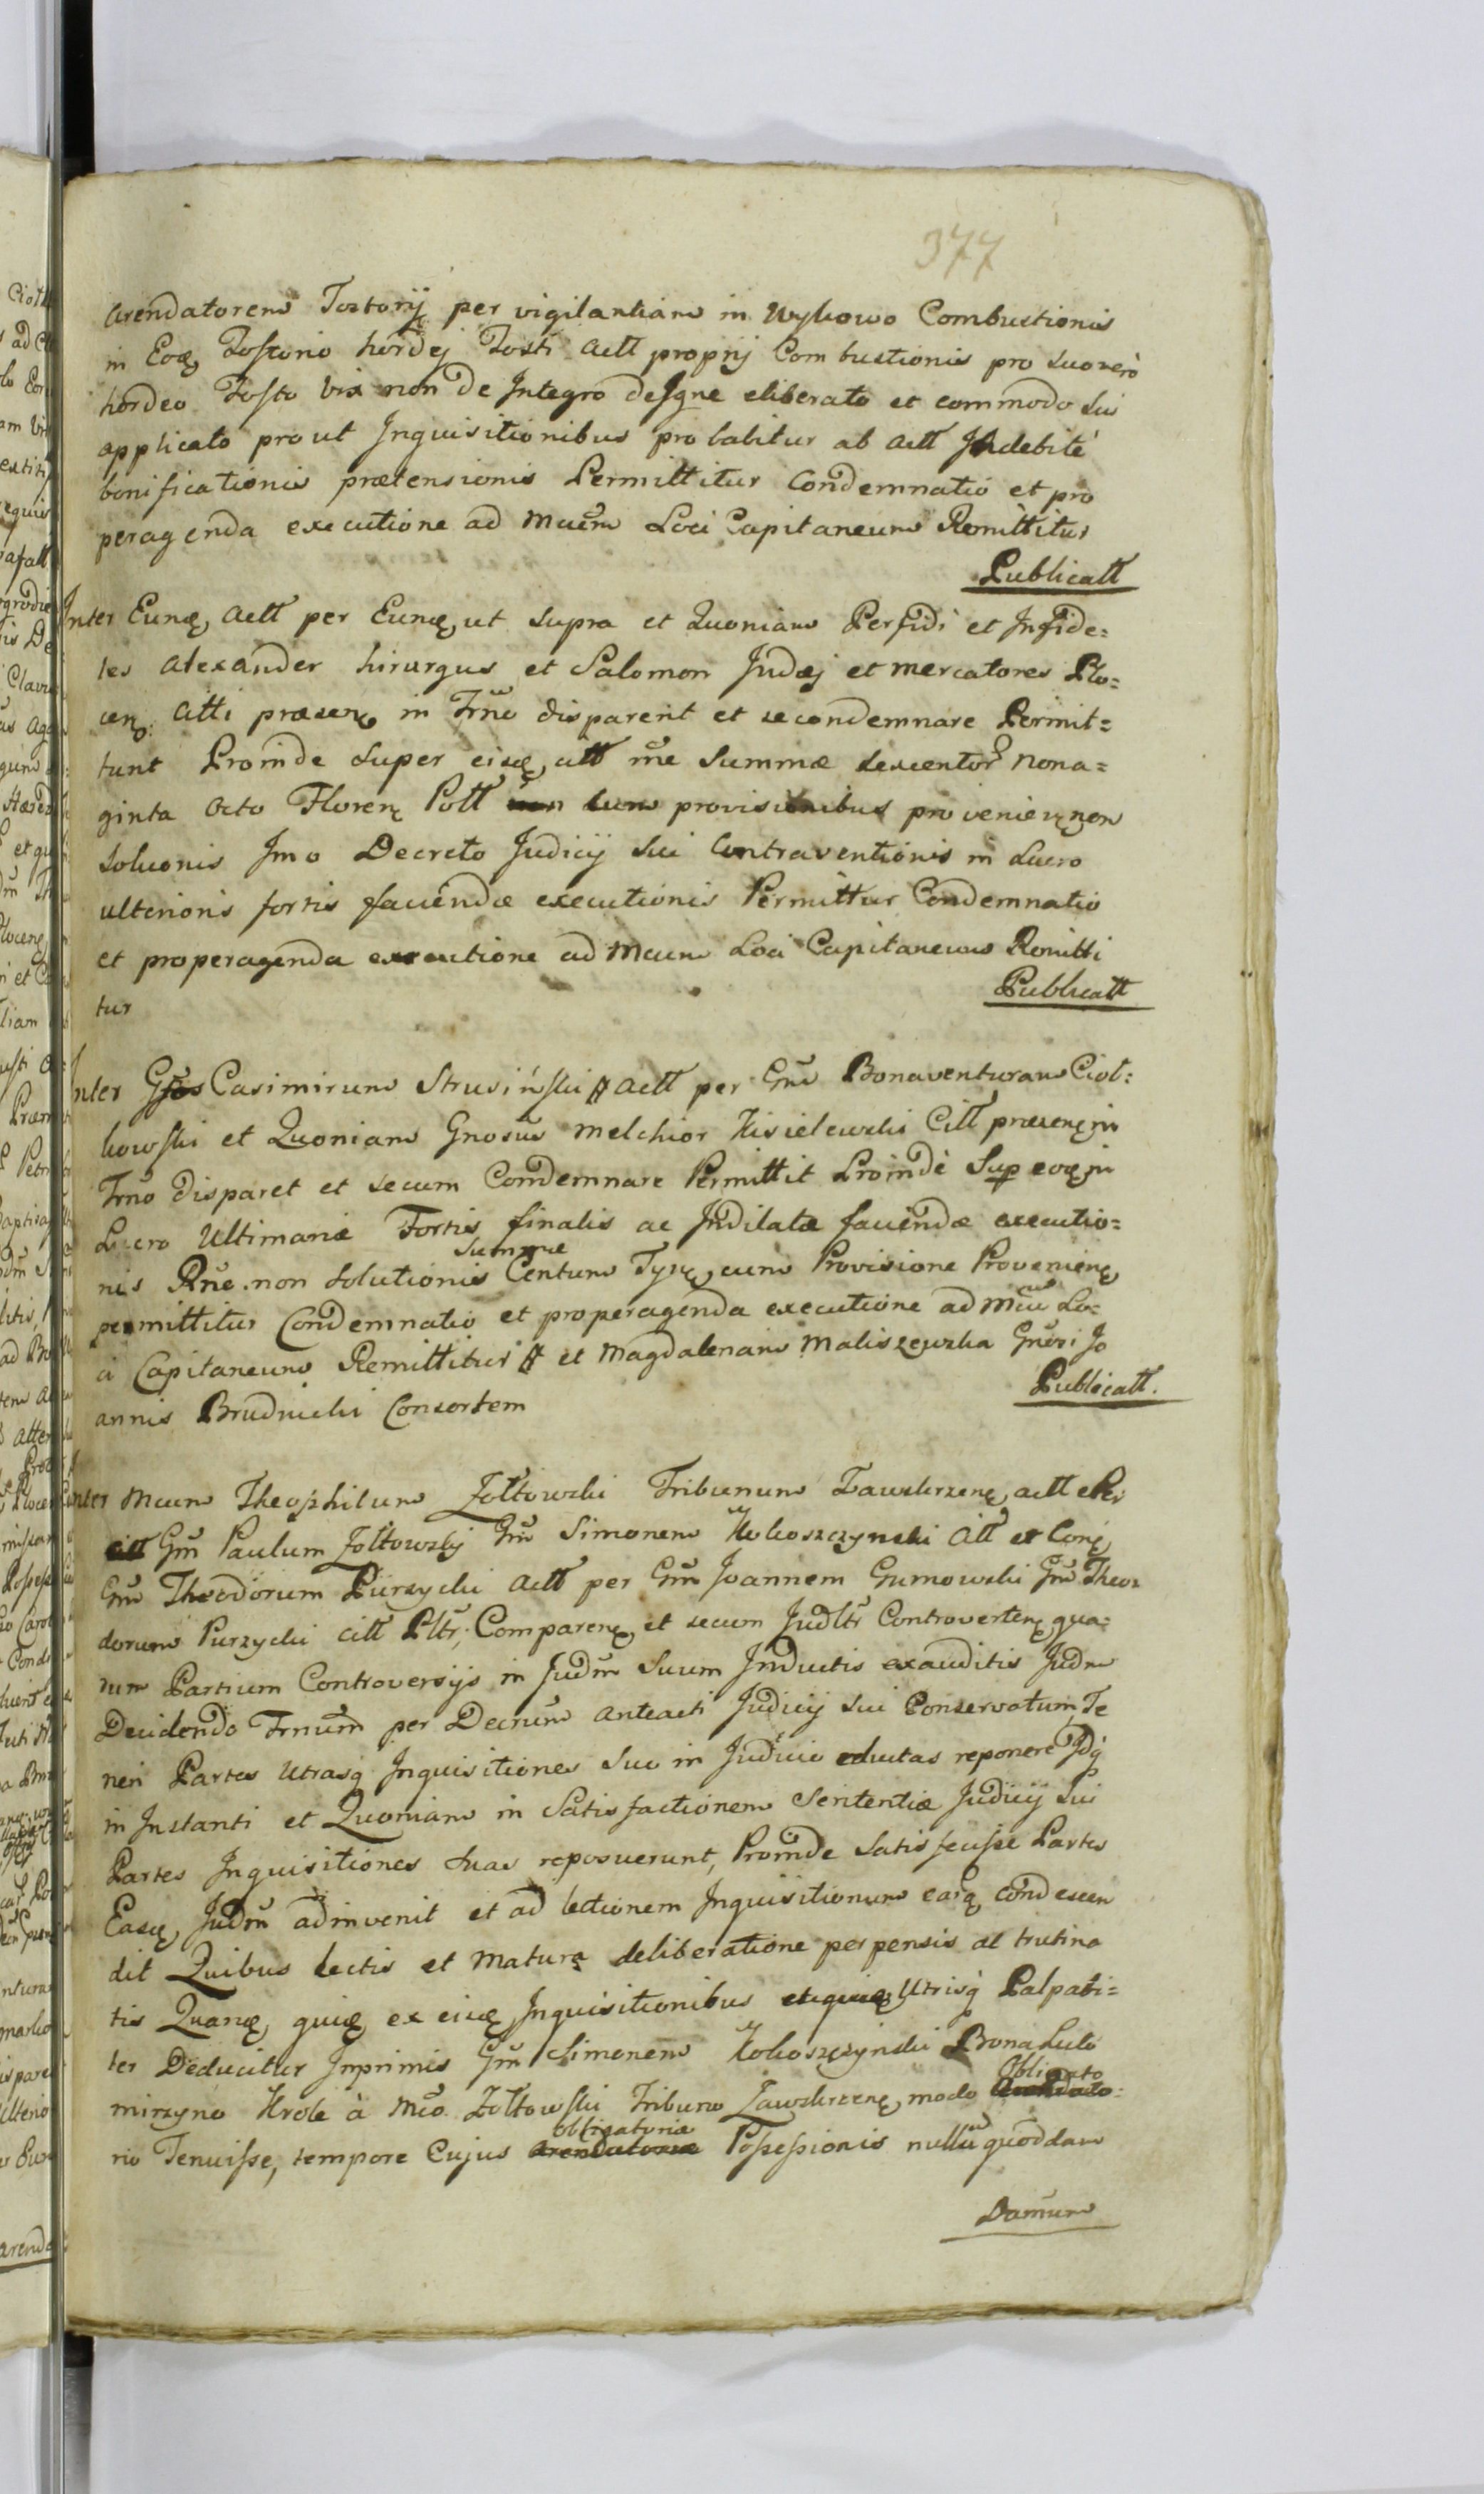 377
arendatorem Tostorij per vigilantiam in Wykowo Combustionis
in Eoq, Tostorio hordej Tosti actt proprij Combustionis pro suo verò
hordeo Tosto vix non de Integro desque eliberato et commodo sui
applicato prout Inquisitionibus probabitur ab actt Indebitè
bonificationis prætensionis Permittitur Condemnatio et pro
peragenda executione ad Mcum Loci Capitaneum Remittitur
Publicatt
Inter Eunq, actt per Eunq, ut supra et Quoniam Perfidi et Infide=
les Alexander hirurgus et Salomon Judæj et mercatores Plo=
cen. citti præsen in Trno disparent et se condemnare Permit=
tunt Proinde super eisq, citt rne Summæ sexcentor nona=
ginta octo Floren Poll cum provisionibus provenien non
Soluonis Imo Decreto Judicij sui Contraventionis in Lucro
ulterioris fortis faciendæ executionis Permittur Condemnatio
et pro peragenda executione ad Mcum Loci Capitaneum Remitti
tur
Publicatt
Inter Gsos Casimirum Strusiński # actt per Gnm Bonaventuram Ciol=
kowski et Quoniam Gnosus Melchior Kisielewski Citt præsen in
Trno disparet et secum Condemnare Permittit Proindè Sup eoq in
Lucro Ultimariæ Fortis finalis ac Indilatæ faciendæ executio=
nis Rne non solutionis Summæ Centum Tyn, cum Provisione Provenien
permittitur Condemnatio et pro peragenda executione ad Mcum Lo=
ci Capitaneum Remittitur # et Magdalenam Maliszewska Gnosi Jo
annis Brudnicki Consortem
Publicatt.
Inter Mcum Theophilum Zołtowski Tribunum Zawskrzen, actt per
Gnm Paulum Zołtowskj Gnm Simonem Kokoszczynski Citt et Conq
Gnm Theodorum Purzycki actt per Gnm Joannem Gumowski Gnm Theo=
dorum Purzycki citt Pltr, Comparen, et secum Judltr Controverten, qua=
rum Partium Controversijs in Judm Suum Inductis exauditis Judm
Decidendo Trnum per Decrum anteacti Judicij sui Conservatum Te
neri Partes Utrasq Inquisitiones suo in Judicio eductas reponere Idq
in Instanti et Quoniam in Satisfactionem Sententiæ Judicij Sui
Partes Inquisitiones suas reposuerunt, Proinde Satisfecisse Partes
Easq, Judm adinvenit et ad lectionem Inquisitionum earq condescen
dit Quibus lectis et Matura deliberatione perpensis ac trutina
tis Quanq, quiq, ex eisq, Inquisitionibus Utrisq Palpabi=
ter Deducitur Inprimis Gnm Simonem Kokoszczynski Bona Lubo
mirzyno Krole à Mco Zołtowski Tribuno Zawskrzen, modo Obligato
rio Tenuisse, tempore Cujus obligatoriæ Possessionis nullu quoddam
Damnum